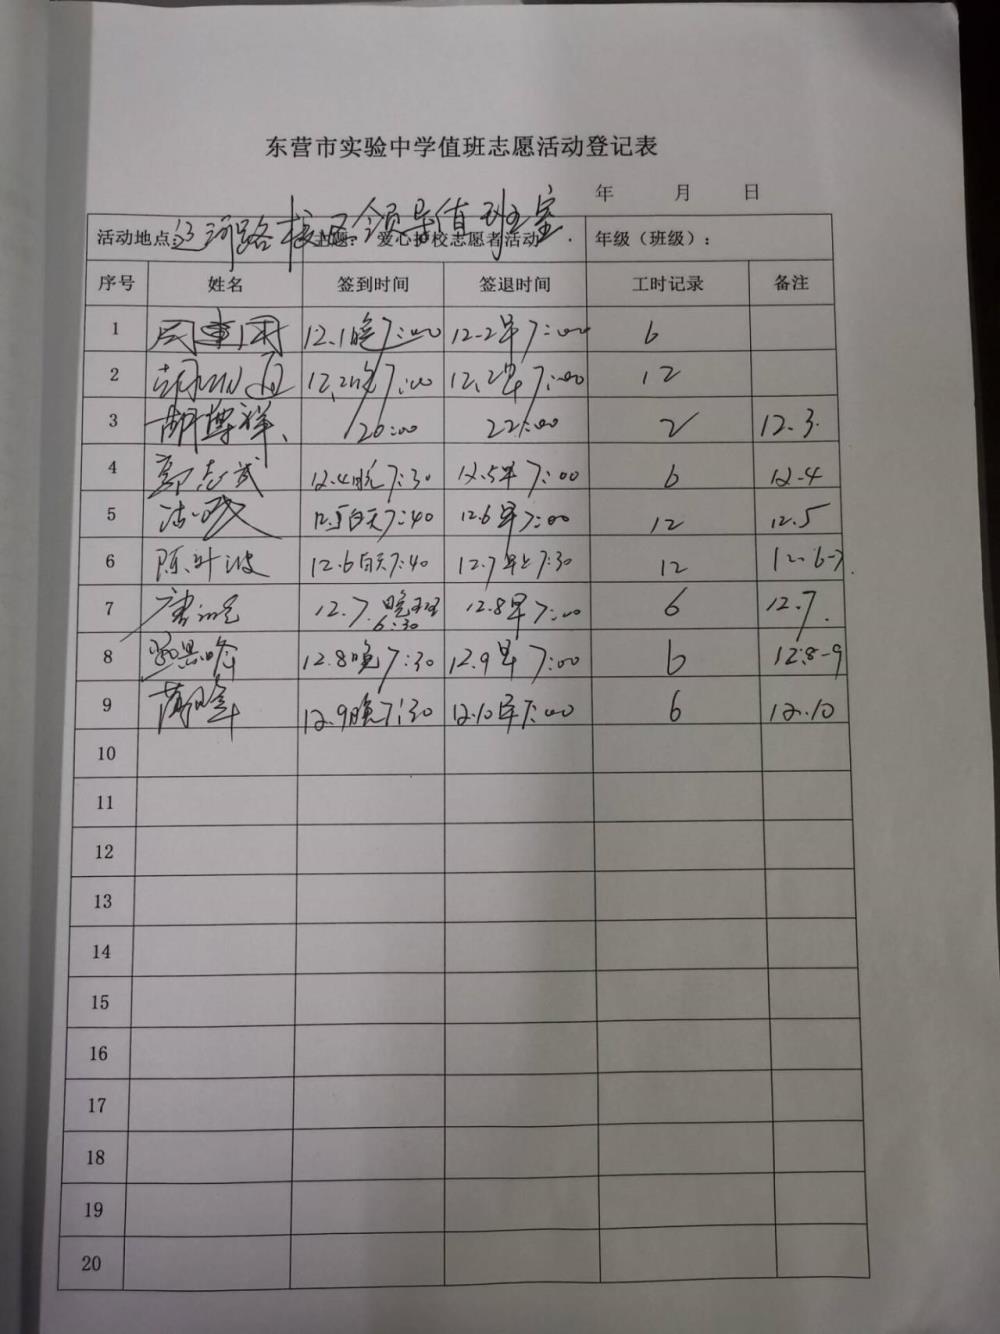 东营市实验中学值班志愿活动登记表
年 月 日
活动地点: 河路校区领导值班室 主题: 爱心护校志愿者活动 年级（班级）:
序号 姓名 签到时间 签退时间 工时记录 备注
1 12.1晚7:00 12.2早7:00 6
2 12.2 7:00 12.2早7:00 12
3 胡博祥 20:00 22:00 2 12.3
4 郭志武 12.4晚7:30 12.5早7:00 6 12.4
5 12.5白天7:40 12.6早7:00 12 12.5
6 陈叶波 12.6白天7:40 12.7早上7:30 12 12.6-7
7 12.7.晚班6:30 12.8早7:00 6 12.7.
8 12.8晚7:30 12.9早7:00 6 12.8-9
9 12.9晚7:30 12.10早7:00 6 12.10
10
11
12
13
14
15
16
17
18
19
20